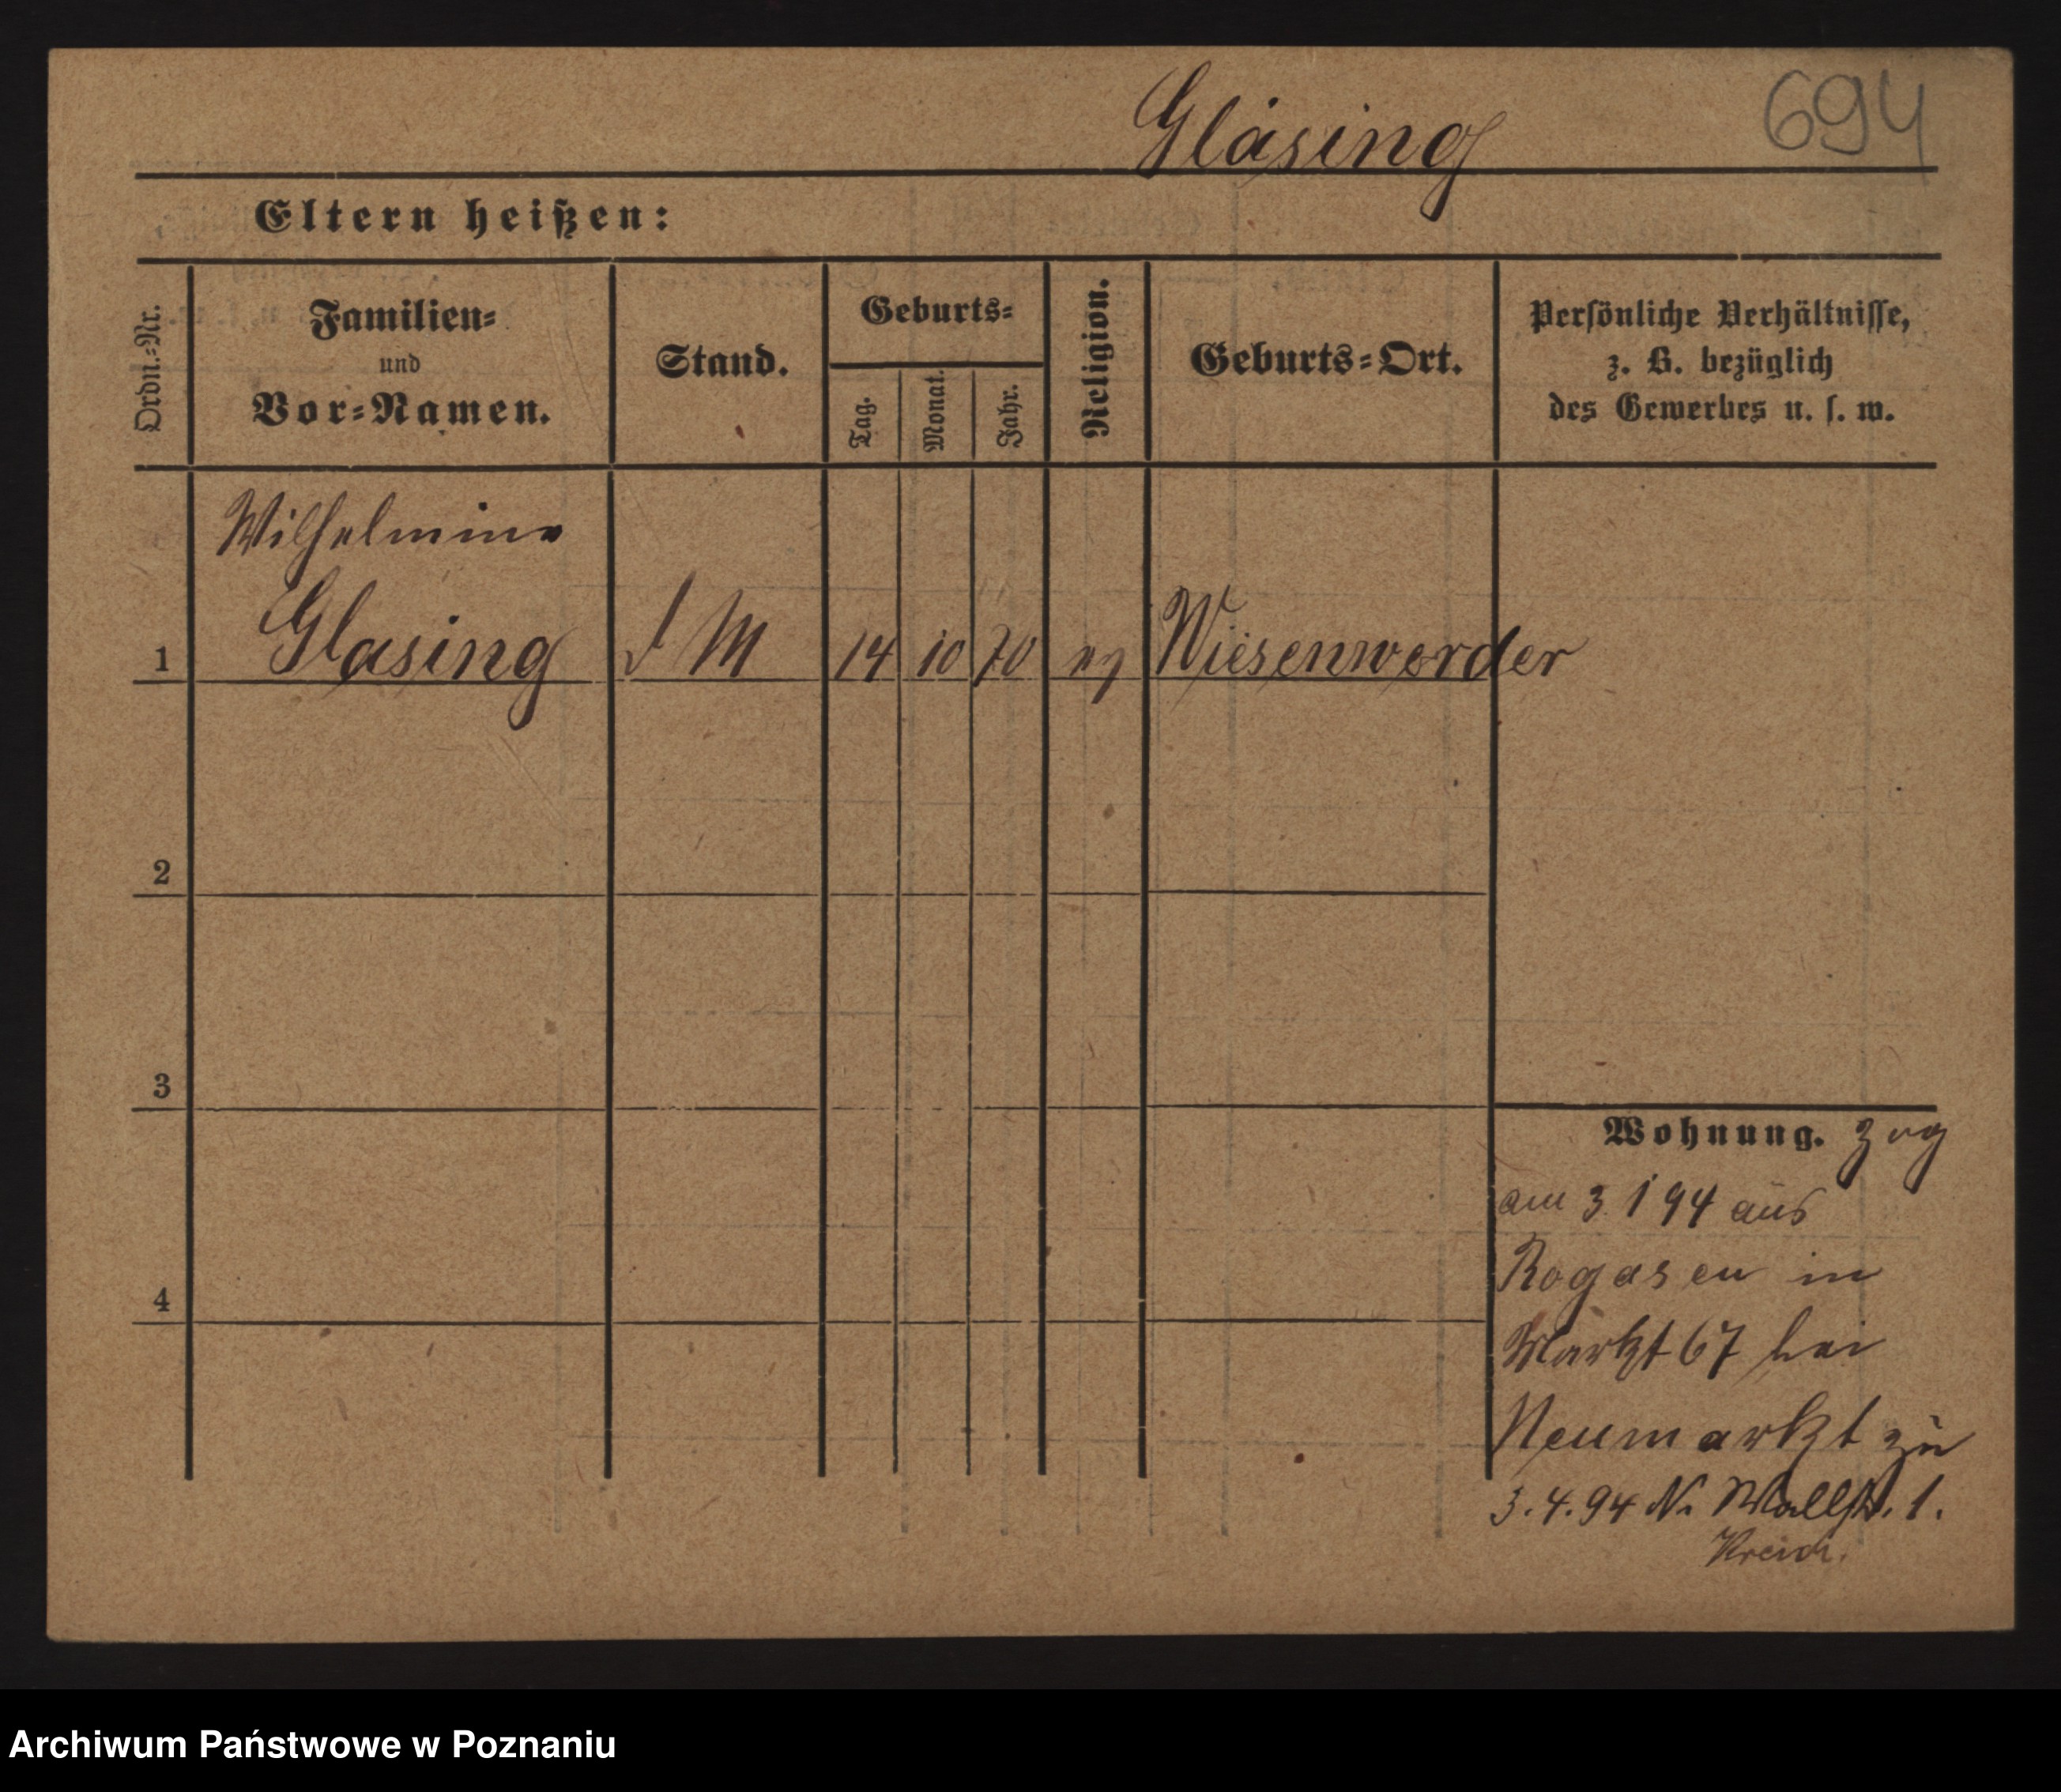 Gläsing 694
Eltern heißen:
Ordn.-Nr.
Familien-
und
Vor-Namen.
Stand.
Geburts-
Tag.
Monat.
Jahr.
Religion.
Geburts-Ort.
Persönliche Verhältnisse,
z. B. bezüglich
des Gewerbes u. s. w.
Wilhelmine
1 Glasing M 14 10 70 ev Wiesenwerder
2
3
4
Wohnung. zog
am 3. 1 94 aus
Rogasen in
Markt 67 bei
Neumarkt zu
3.4.94 N. Wallstr. 1.
Archiwum Państwowe w Poznaniu